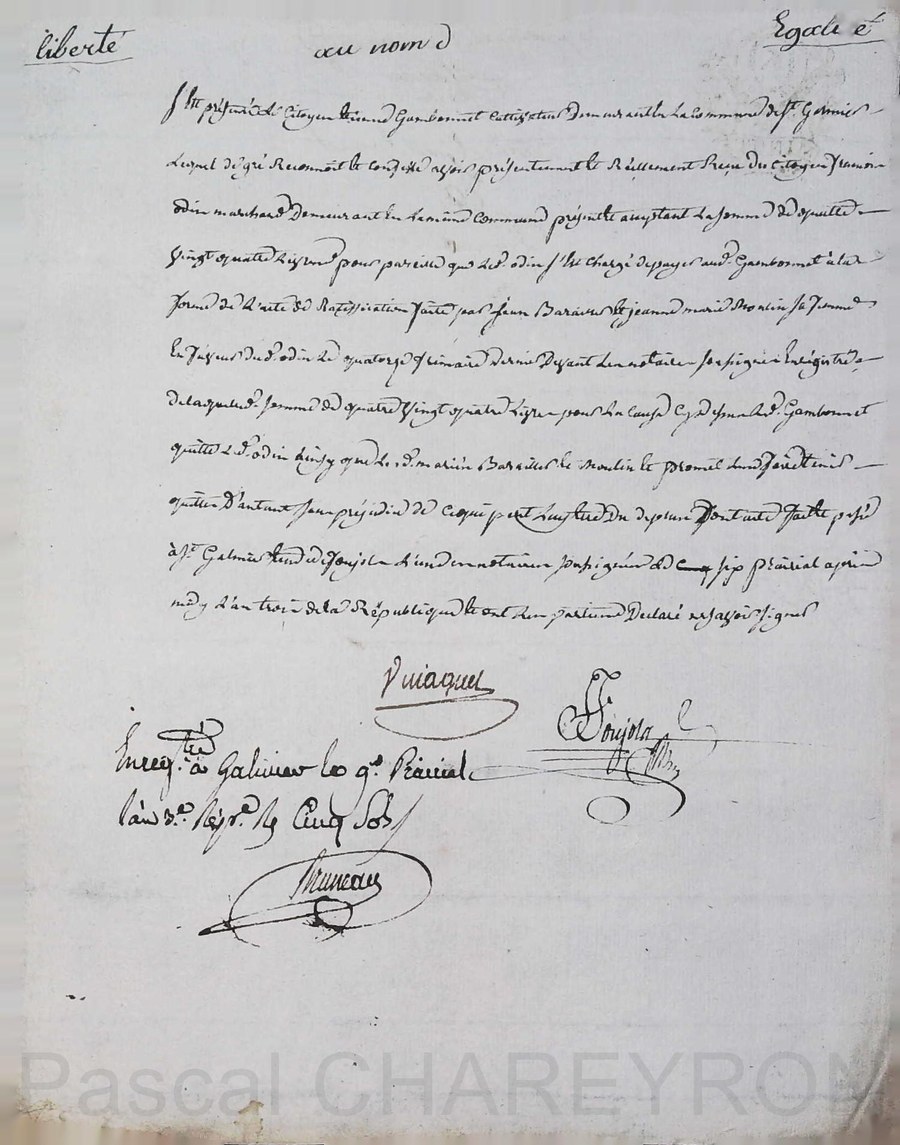 liberté
au nom d
Egali é
S'est présenté le Citoyen Gambonnet Cultivateur Demeurant en La Commune de St. Galmier
Lequel de gré Reconnoit et Confesse avoir présentement et Réellement Reçu du Citoyen
odin marchand Demeurant en La même Commune présent et acceptant La somme de quatre
Vingt quatre Livres pour pareille que Led. odin s'est Chargé de payer aud. Gambonnet à la
forme de L'acte de Ratification faite par Jean et jeanne marie Moulin sa femme
En faveur dud. odin Le quatorze frimaire dernier Devant Le notaire soussigné Enregistré
De laquelle somme de quatre Vingt quatre Livres pour La Cause Cy dessus Led. Gambonnet
quitte Led. odin Ainsy que Les d. mariés et Moulin et promet Les faire tenir
quittes D'autant sans préjudice de Ce qui peut Dont acte fait et passé
à St. Galmier Etude de Poujola L'un des notaires soussignés Le six prairial après
midy L'an trois de la République et ont Les parties Déclaré ne savoir signer
Poujola
Enregtré. à Galmier le 9e. Prairial
l'an 3e. Rep. R Cinq Sols
Bruneau
Pascal CHAREYRON